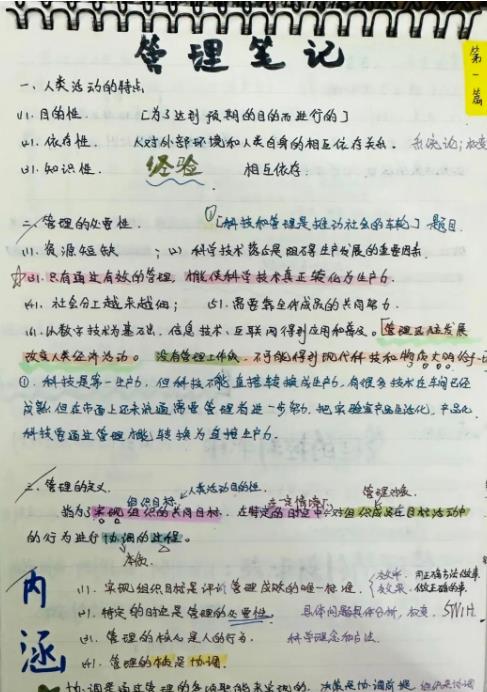 管理笔记
第一篇
一、人类活动的特点
(1). 目的性. [为了达到预期的目的而进行的]
(2). 依存性. 人对外部环境和人类自身的相互依存关系. 系统论;权变
(3). 知识性. 经验 相互依存.
二、管理的必要性. ①[科技和管理是推动社会的车轮] 题目.
(1). 资源短缺 ; (2) 科学技术落后是阻碍生产发展的重要因素.
☆(3). 只有通过有效的管理, 才能使科学技术真正转化为生产力.
(4). 社会分工越来越细; (5). 需要靠全体成员的共同努力.
(6). 以数字技术为基础, 信息技术、互联网得到应用和普及. [管理正在发展
改变人类经济活动. 没有管理工作成, 不可能得到现代科技和物质文明的
①. 科技是第一生产力, 但科技不能直接转换成生产力, 有很多技术在车间已经
成熟. 但在市面上还未流通, 需要管理者进一步努力. 把实验室产品生活化, 产品化.
科技要通过管理才能转换为直接生产力.
三、管理的定义. 组织目标 人类活动目的性. 管理对象.
指为了实现组织的共同目标, 在特定的时空中, 对组织成员在目标活动中
的行为进行协调的过程.
本质.
内涵
(1). 实现组织目标是评价管理成败的唯一标准. {效率. 用正确方法做事. 效果. 做正确的事.
(2). 特定的时空是管理的必要性. 具体问题具体分析, 权变. 5W1H.
(3). 管理的核心是人的行为. 科学理念和方法.
(4). 管理的本质是协调.